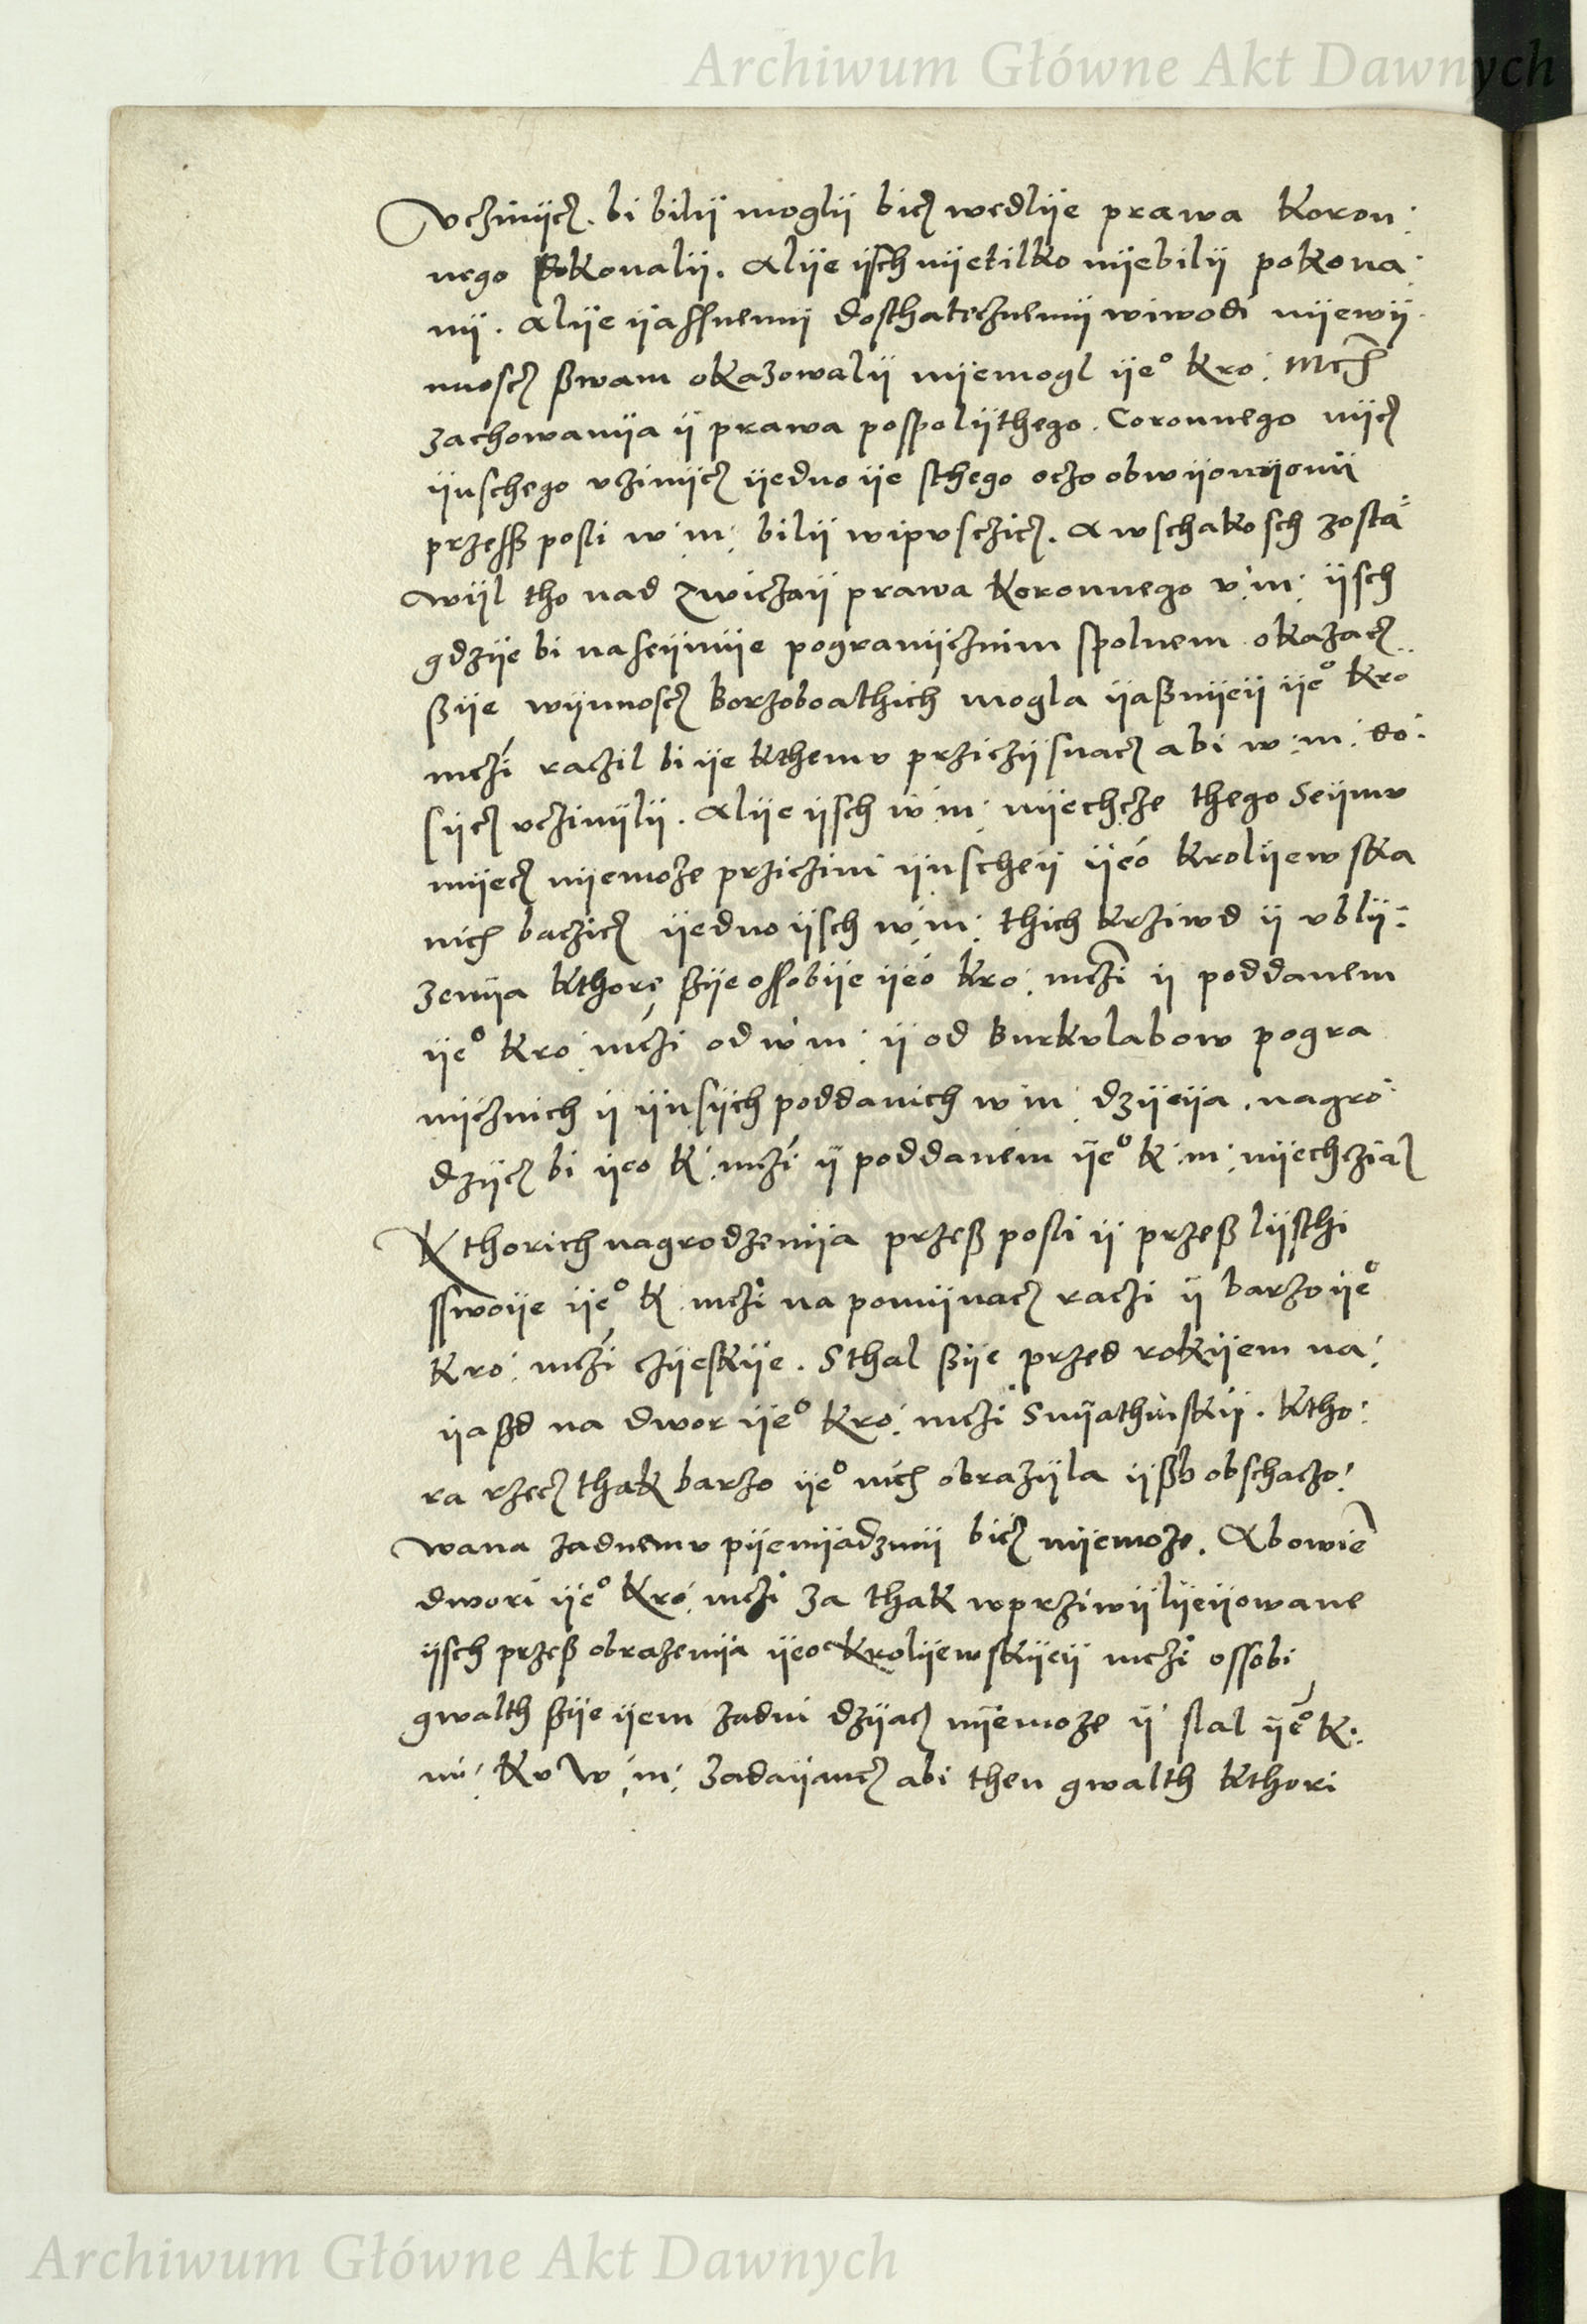 Archiwum Główne Akt Dawnych
vczinijcz. bi bilij moglij bicz wedlije prawa Koron:
nego pokonalij. Alije ijsch nijetilko nijebilij pokona:
nij. Alije ijassnemij dosthatecznemij wiwodi nijewij
nnoscz ßwam okazowalij nijemogl ije° Kro: Mcz
zachowanija ij prawa pospolijthego. Coronnego nijcz
ijnschego vczinijcz ijedno ije sthego oczo obwijonijonij
przessß posli w: m: bilij wipvsczicz. A wschakosch zosta=
wijl tho nad zwiczaij prawa Koronnego v: m: ijsch
gdzije bi na seijmije pogranijcznim spolnem okazacz
ßije wijnnoscz Borzoboathich mogla ijaßnijeij ije° Kro
mczi raczil bi ije kthemv prziczijsnacz abi w: m: do:
sijcz vczinijlij. Alije ijsch w: m: nijechcze thego Seijmv
mijecz nijemoze prziczini ijnscheij ijeo krolijewska
mcz baczicz ijedno ijsch w: m: thich krziwd ij vblij:
zenija kthore ßije ossobije ijeo kro: mczi ij poddanem
ije° kro: mczi od w: m: ij od Burkvlabow pogra
nijcznich ij ijnsijch poddanich w: m: dzijeija. nagro:
dzijcz bi ijeo k: mczi ij poddanem ije° k: m: nijechczial
Kthorich nagrodzenija przeß posli ij przeß lijsthi
sswoije ije° K. mczi na pomijnacz raczi ij barzo ije°
Kro: mczi czijeskije. Sthal ßije przed rokijem na:
ijaßd na dwor ije° Kro: mczi Snijathinskij. Ktho:
ra rzecz thak barzo ije° mcz obrazijla ijßb obschaczo:
wana zadnemv pijenijadzmij bicz nijemoze. Abowie
dwori ije° Kro: mczi za thak wprziwijlijeijowane
ijsch przeß obrazenija ijeo krolijewskijeij mczi ossobi
gwalth ßije ijem zadni dzijacz nijemoze ij slal ije° k:
m: Kv W: m: zadaijancz abi then gwalth kthori
Archiwum Główne Akt Dawnych